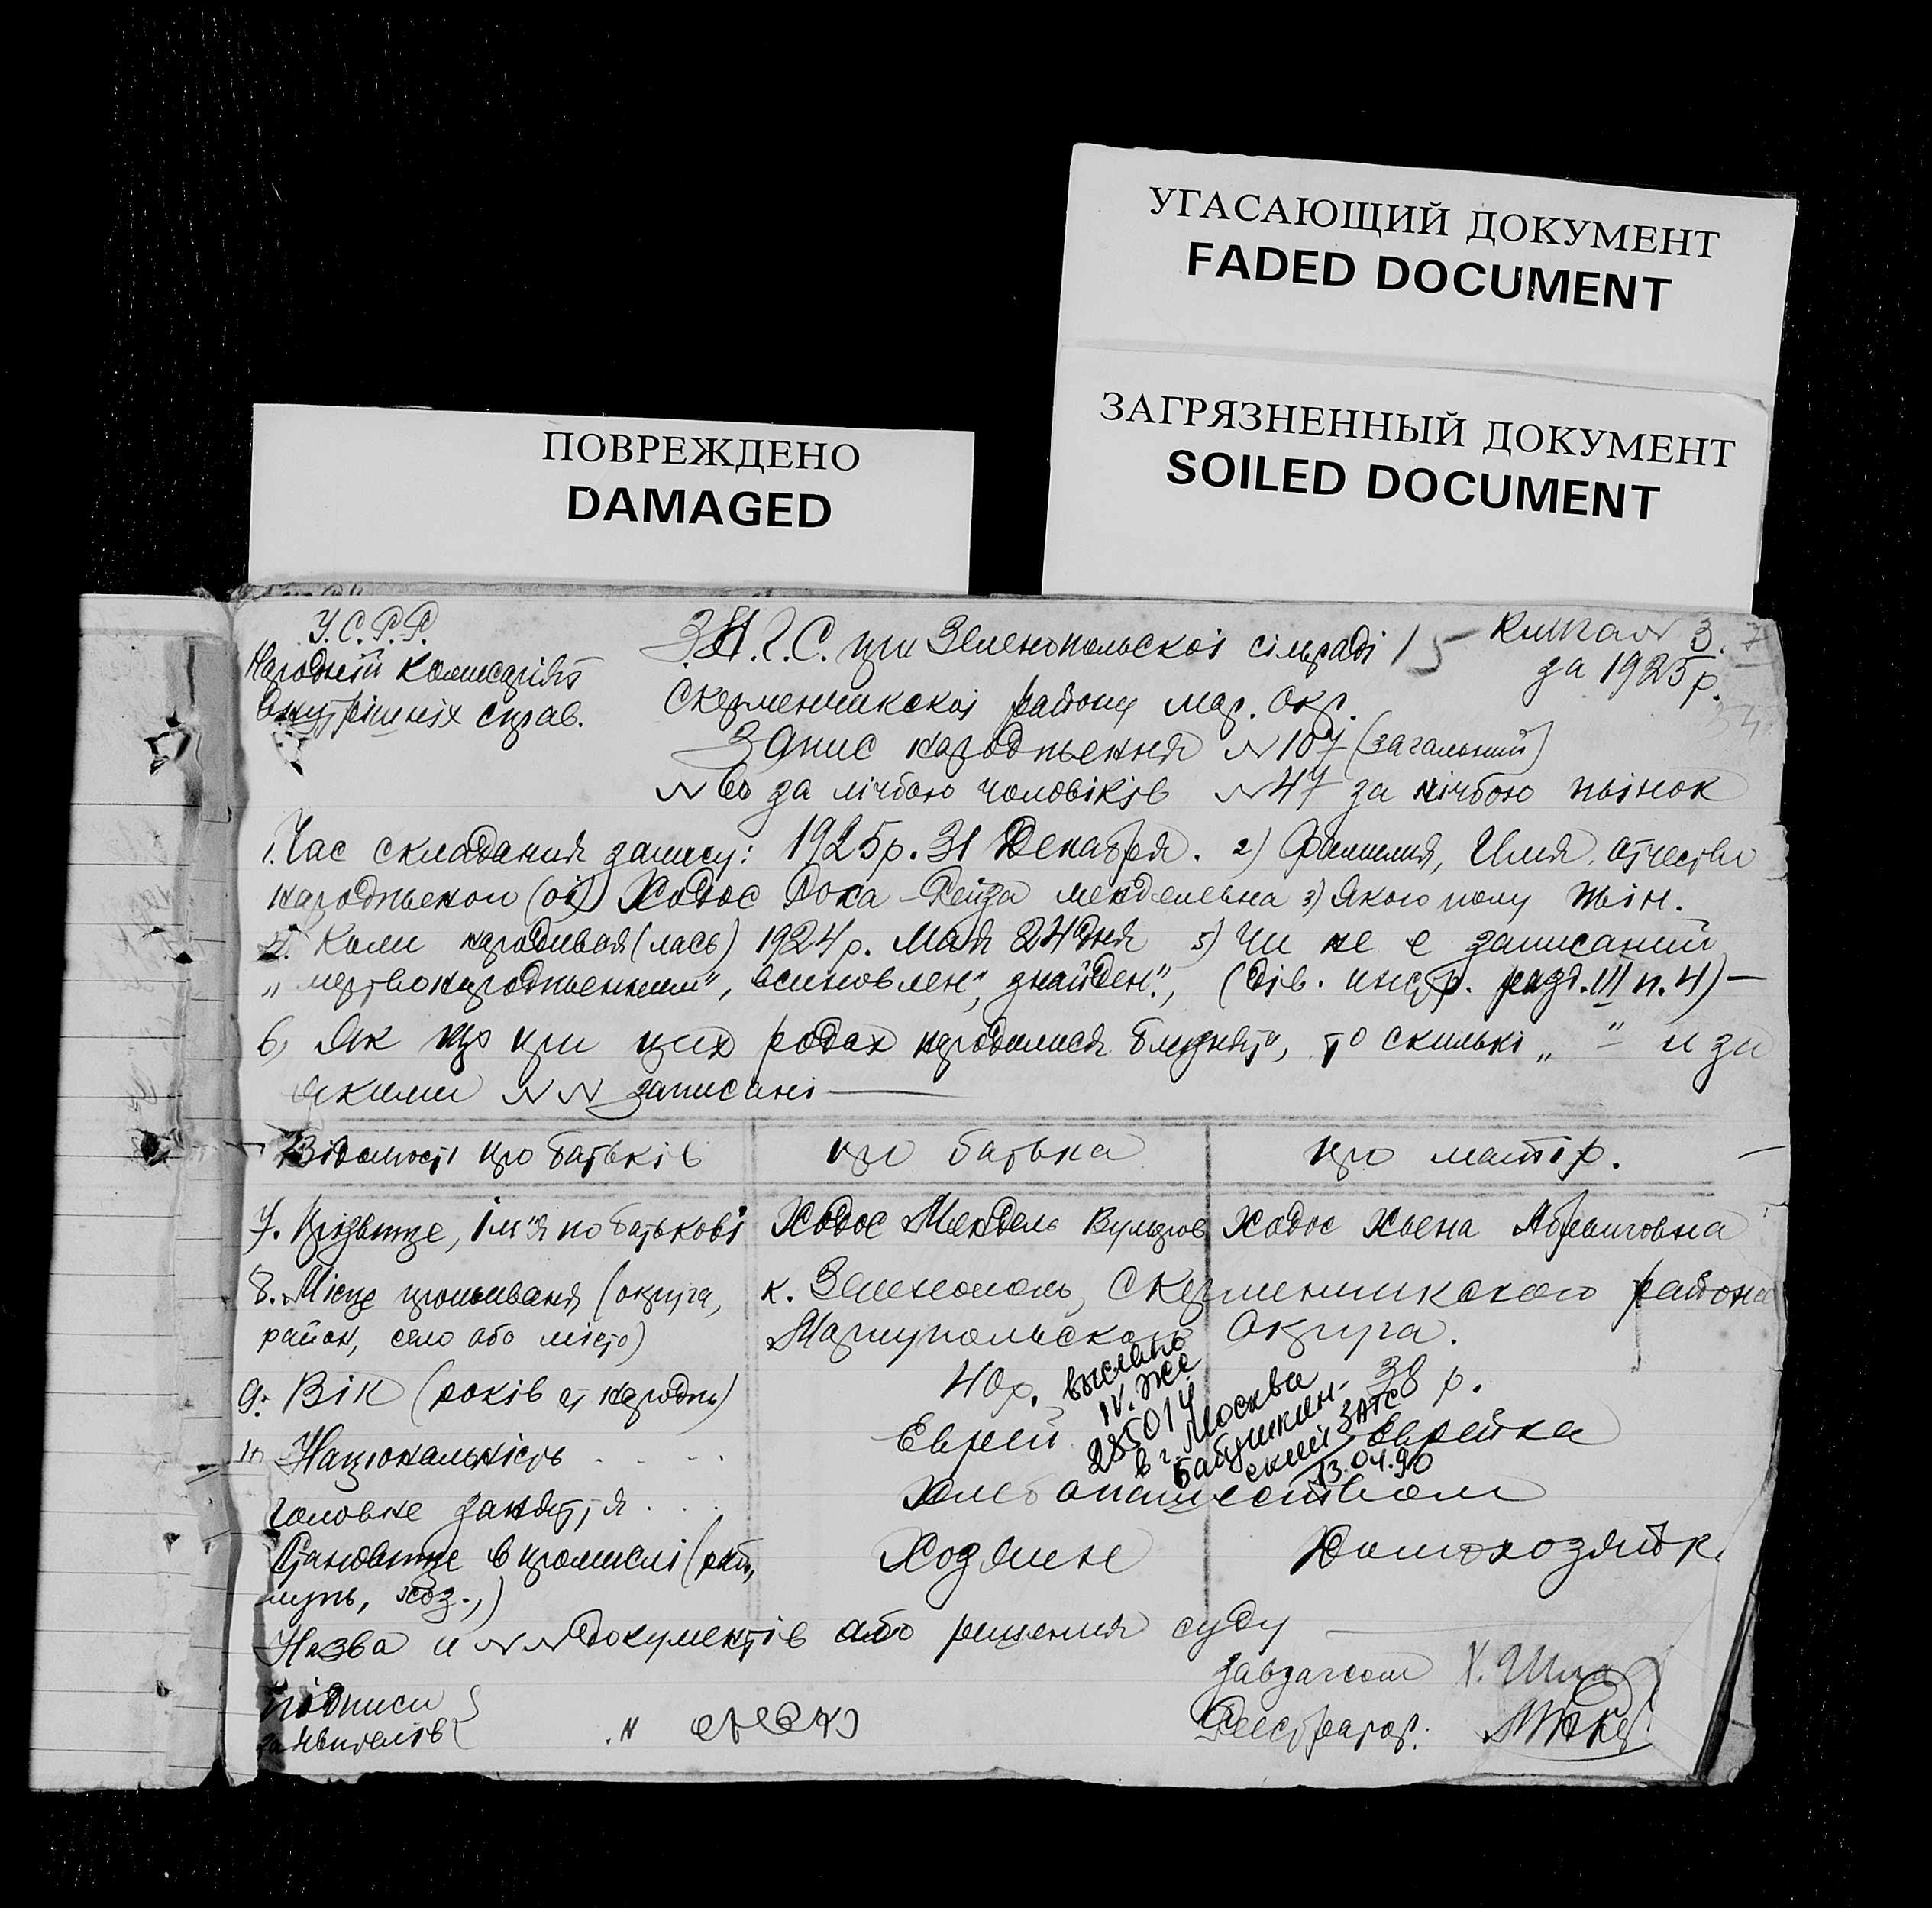 УГАСАЮЩИЙ ДОКУМЕНТ
FADED DOCUMENT
ЗАГРЯЗНЕННЫЙ ДОКУМЕНТ
SOILED DOCUMENT
ПОВРЕЖДЕНО
DAMAGED
У.С.Р.Р.
Народній Комисаріят
Внутрішніх справ.
З.А.Г.С. при Зеленопольскоі сільраді 15
Скерменчикскоі району Мар. Окр.
Книга № 3. 7
за 1925 р.
Запис народження № 107 (загальний)
№ 60 за лічбою чоловіків № 47 за лічбою жінок
1. Час складания запису: 1925 р. 31 Декабря. 2) Фамилия, Имя, Отчество
народженои (ої) Ходос Рейза Мендельевна 3) Якого полу жін.
4. Коли народивая (лась) 1924 р. Мая 24 дня 5) Чи не е записаний
„мертвонародженним", „всиновлен", „знайден", (див. инстр. разд. III п. 4) —
6) Як що при цих родах народилися близнята, то скількі „ — " и за
якими № № записані —
Відомості про батьків про батька про матір.
7. Прізвище, ім'я по батькові Ходос Мендель Вульфов Ходос Хьена Абрамовна
8. Місце проживаня (округа, к. Зеленополь, Скерменчикского района
район, село або місто) Мариупольского Округа.
9. Вік (років від народж) 40 р. 38 р.
выслано
IV. ЖС
285014
в г. Москва
Бабушкин-
ский ЗАГС
13.04.90
Національність . . . . Еврей Еврейка
головне заняття . . . Хлебопашеством
Становище в промислі (роб., Хозяин Домохозяйк.
служ, хоз.,)
Назва и № № документів або решения суду —
Завзагсом Х.
підписи
заявителів
Реестратор.